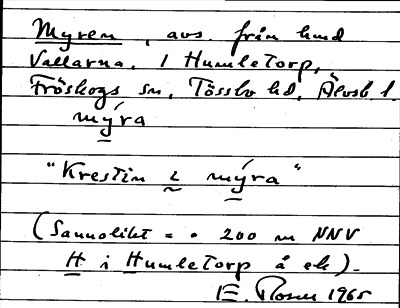 Myren, avs. från hmd
Vallarna, 1 Humletorp,
Fröskogs sn, Tössbo hd, Älvsb. l.
mýra
"Krestin i mýra"
(Sannolikt = • 200 m NNV
H i Humletorp å ek).
E. Rosen 1965